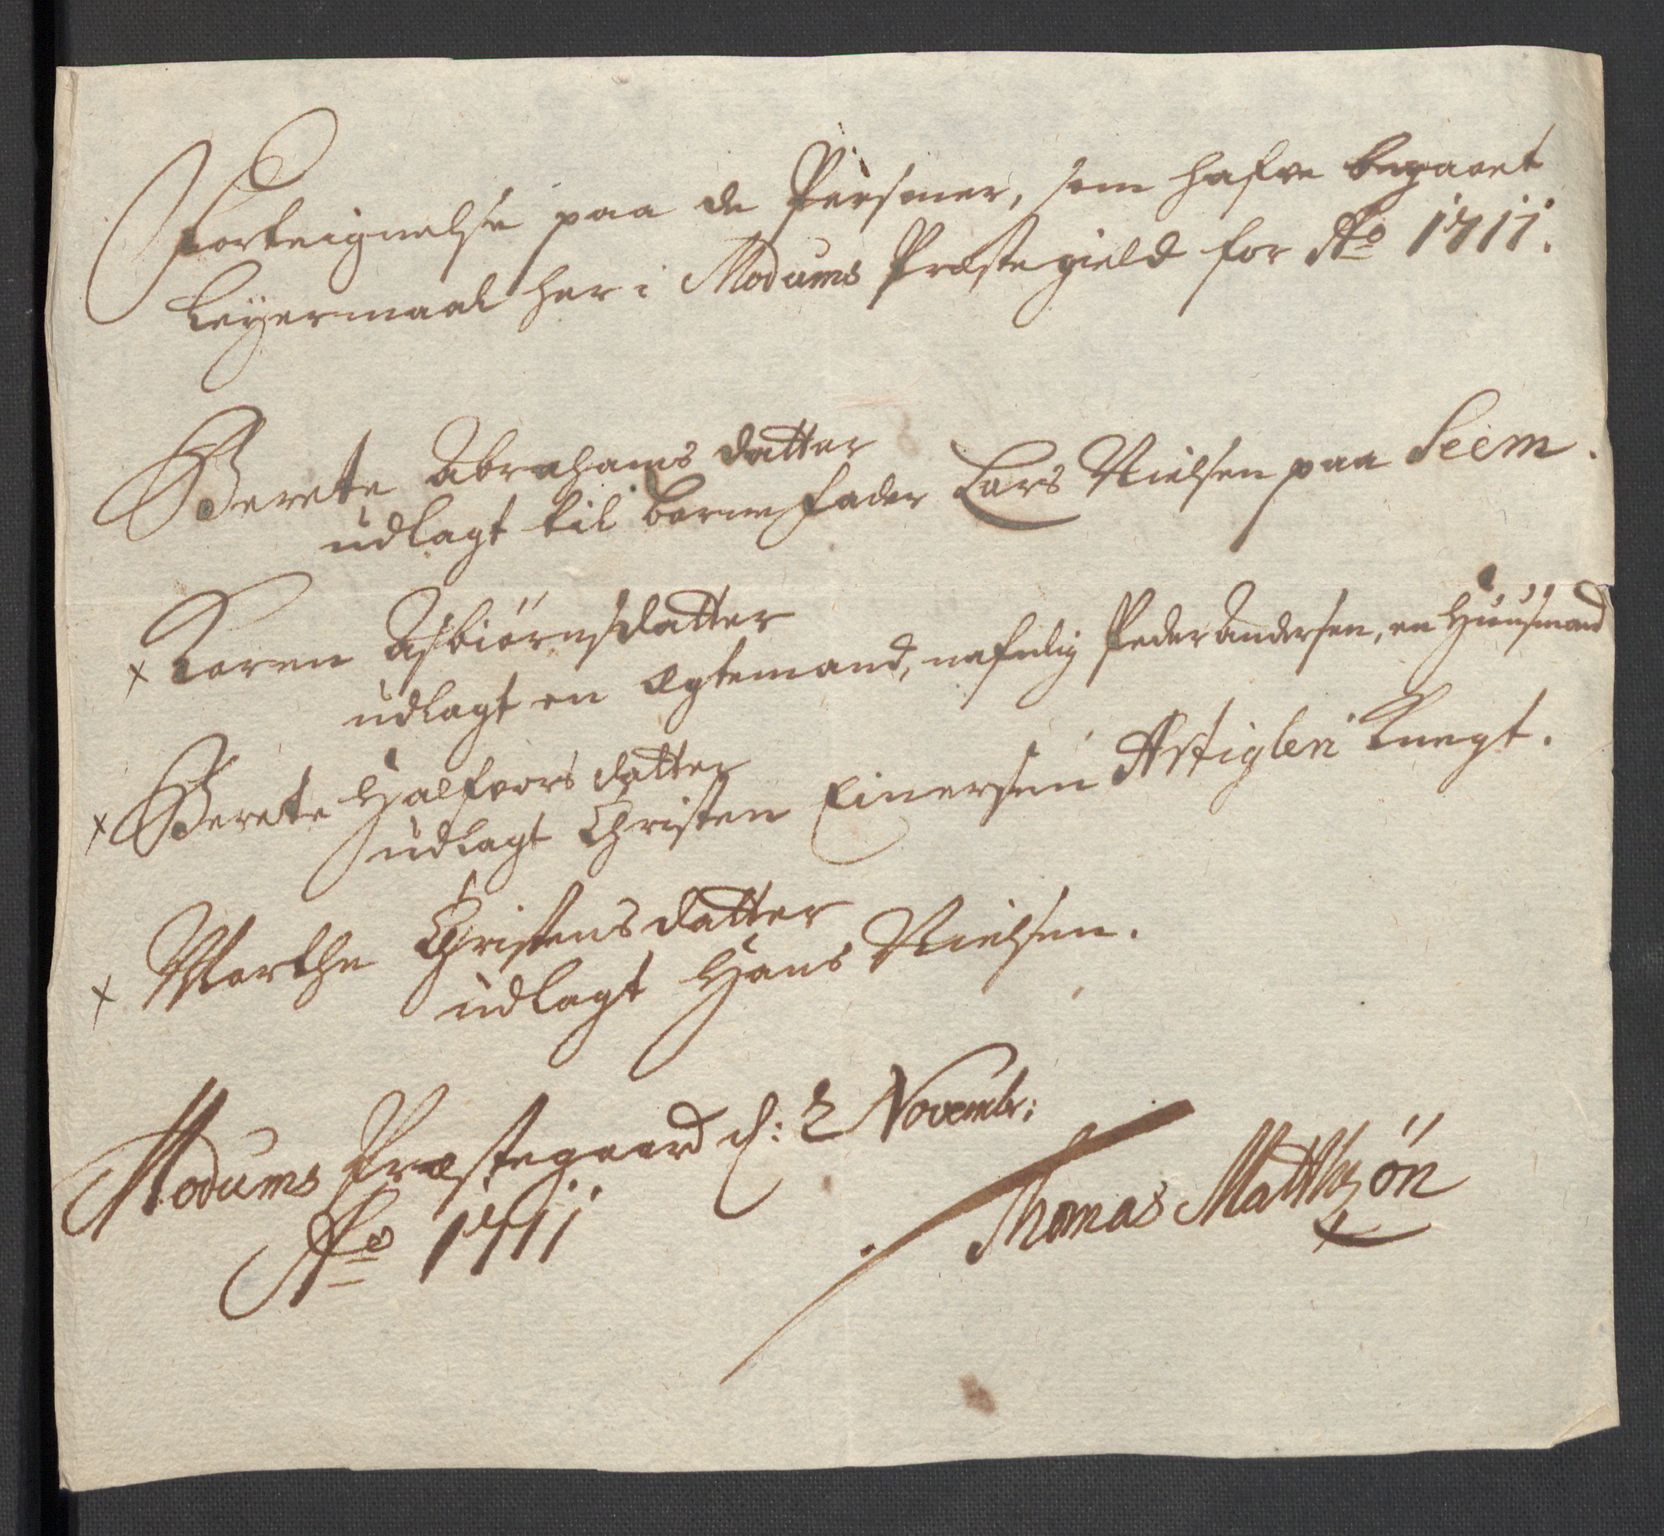 Forteignelse paa de Persomer, som hafve begaaet
Leyermaal her i Modums Præstegield for Ao 1711.
Berete Abrahams datter
udlagt til barnefader Lars Nielsen paa Seem.
x Karen Asbiørnsdatter
udlagt en ægtemand, nafnlig Peder Andersen, en Huusmand
x Berete Halfvors datter
udlagt Christen Einersen Artigleri Knegt.
x Marthe Christens datter
udlagt Hans Nielsen.
Modums Præstegaard d: 2 Novembr:
Ao 1711
Thomas Matthiæsøn